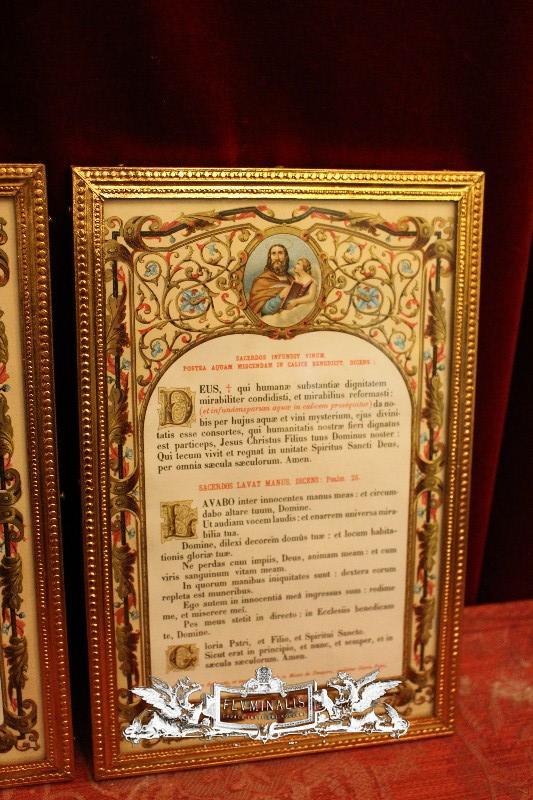 SACERDOS INFUNDIT VINUM,
POSTEA AQUAM MISCENDAM IN CALICE BENEDICIT, DICENS :
DEUS, ✝ qui humanæ substantiæ dignitatem
mirabiliter condidisti, et mirabilius reformasti :
(et infundens parum aquæ in calicem prosequitur) da no-
bis per hujus aquæ et vini mysterium, ejus divini-
tatis esse consortes, qui humanitatis nostræ fieri dignatus
est particeps, Jesus Christus Filius tuus Dominus noster :
Qui tecum vivit et regnat in unitate Spiritus Sancti Deus,
per omnia sæcula sæculorum. Amen.
SACERDOS LAVAT MANUS, DICENS : Psalm. 25.
LAVABO inter innocentes manus meas : et circum-
dabo altare tuum, Domine.
Ut audiam vocem laudis : et enarrem universa mira-
bilia tua.
Domine, dilexi decorem domûs tuæ : et locum habita-
tionis gloriæ tuæ.
Ne perdas cum impiis, Deus, animam meam : et cum
viris sanguinum vitam meam.
In quorum manibus iniquitates sunt : dextera eorum
repleta est muneribus.
Ego autem in innocentiâ meâ ingressus sum : redime
me, et miserere meî.
Pes meus stetit in directo : in Ecclesiis benedicam
te, Domine.
Gloria Patri, et Filio, et Spiritui Sancto.
Sicut erat in principio, et nunc, et semper, et in
sæcula sæculorum. Amen.
FLVMINALIS